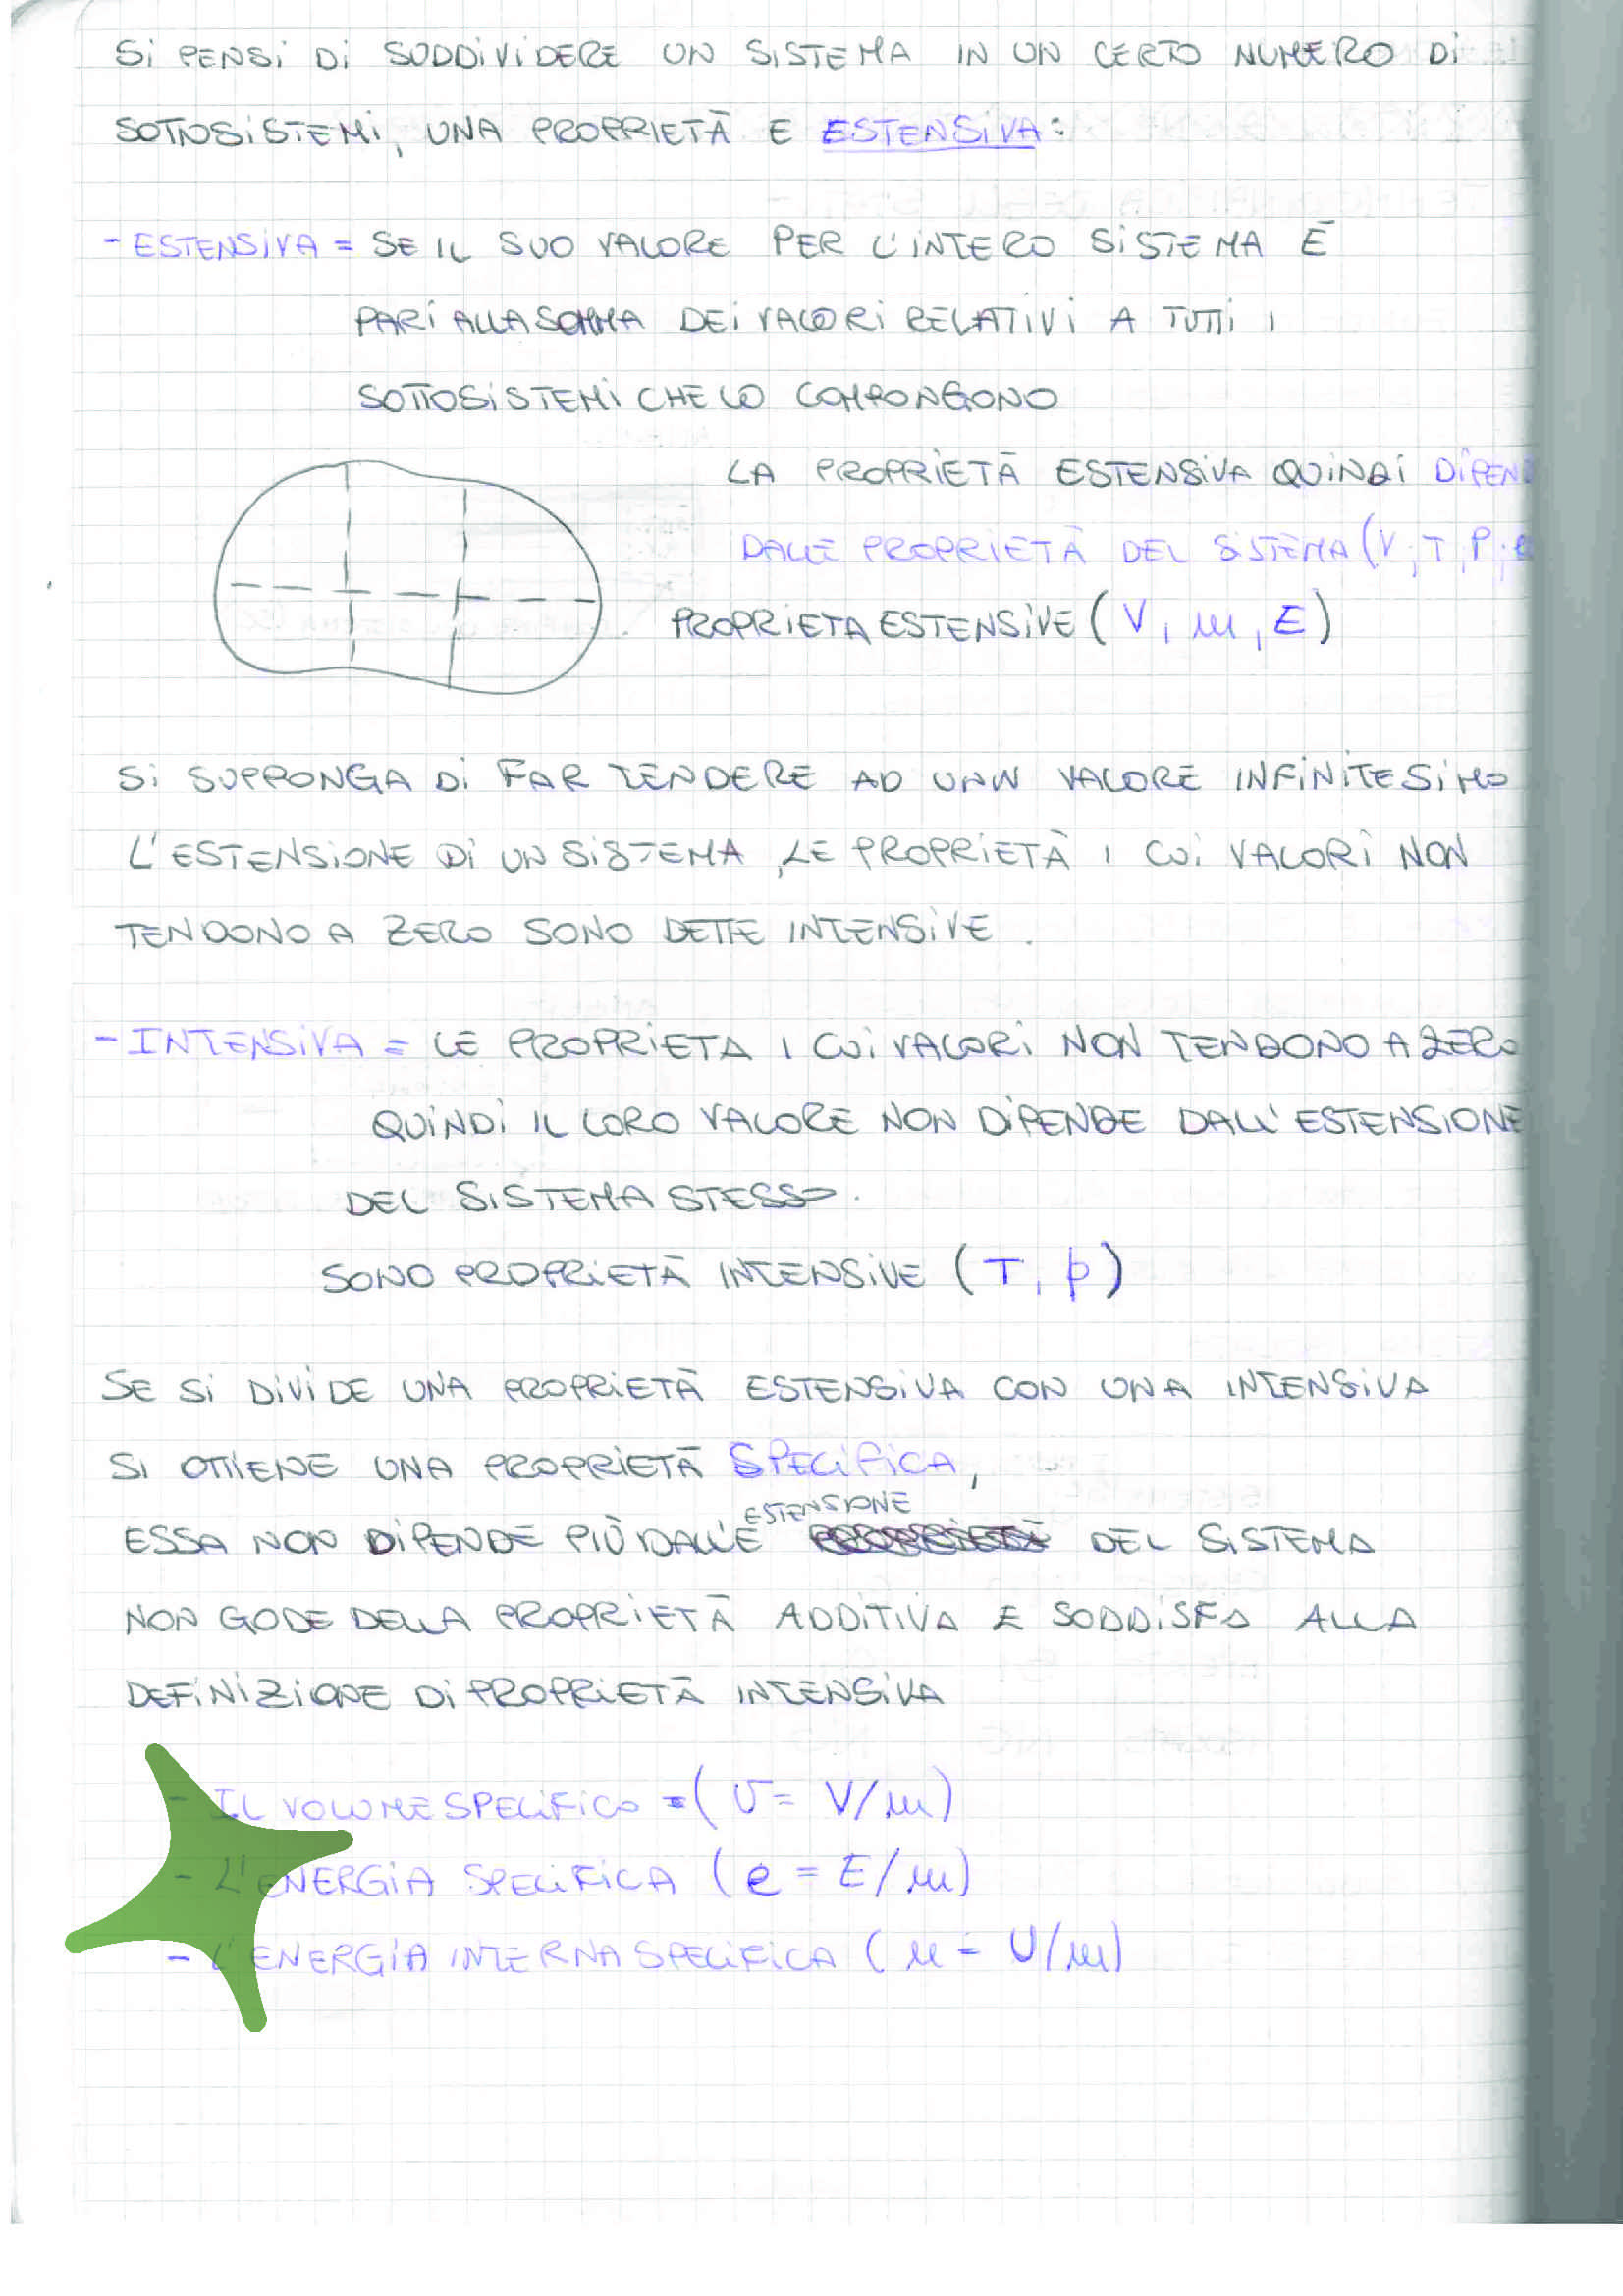 Si PENSi Di SUDDiViDERE UN SISTEMA IN UN CERTO NUMERO Di
SOTTOSiSTEMi, UNA PROPRIETÀ E ESTENSiVA:
- ESTENSiVA = SE IL SUO VALORE PER L'INTERO SiSTEMA È
PARi ALLA SOMMA DEi VALORi RELATiVi A TUTTi I
SOTTOSiSTEMi CHE LO COMPONGONO
LA PROPRiETÀ ESTENSiVA QUiNDi DiPEND
DALLE PROPRiETÀ DEL SiSTEMA (V, T, P,
PROPRiETA ESTENSiVE (V, m, E)
Si SUPPONGA Di FAR TENDERE AD UNN VALORE INFiNiTESiMO
L'ESTENSiONE Di UN SiSTEMA, LE PROPRiETÀ I CUi VALORi NON
TENDONO A ZERO SONO DETTE INTENSiVE.
- INTENSiVA = LE PROPRiETA I CUi VALORi NON TENDONO A ZERO
QUiNDi IL LORO VALORE NON DiPENDE DALL'ESTENSIONE
DEL SISTEMA STESSO.
SONO PROPRiETÀ INTENSiVE (T, p)
SE Si DiViDE UNA PROPRiETÀ ESTENSiVA CON UNA INTENSiVA
SI OTTIENE UNA PROPRiETÀ SPECiFiCA,
ESTENSIONE
ESSA NON DiPENDE PIÙ DALL'E DEL SiSTEMA
NON GODE DELLA PROPRiETÀ ADDiTiVA E SODDiSFA ALLA
DEFiNiZiONE Di PROPRiETÀ INTENSiVA
- IL VOLUME SPECiFiCO = (v = V/m)
- L'ENERGiA SPECiFiCA (e = E/m)
- L'ENERGiA INTERNA SPECiFiCA (u = U/m)